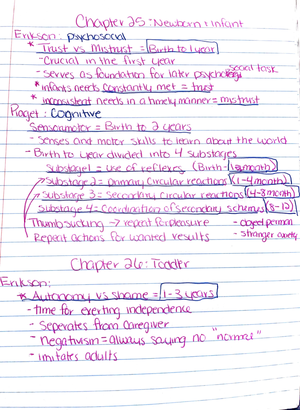 Chapter 25: Newborn & Infant
Erikson: Psychosocial
* Trust vs Mistrust = Birth to 1 year
- Crucial in the first year
- Serves as foundation for later psychological social task
* infants needs constantly met = trust
* inconsistent needs in a timely manner = mistrust
Piaget: Cognitive
Sensorimotor = Birth to 2 years
- Senses and motor skills to learn about the world
- Birth to year divided into 4 substages
Substage 1 = Use of reflexes (Birth - 1st month)
Substage 2 = primary Circular reactions (1-4 month)
Substage 3 = Secondary Circular reactions (4-8 month)
Substage 4 = Coordination of Secondary schemas (8-12)
Thumbsucking → repeat for pleasure - object perman.
Repeat actions for wanted results - stranger anxiety
Chapter 26: Toddler
Erikson:
* Autonomy vs Shame = 1-3 years
- time for exerting independence
- Seperates from caregiver
- Negativism = always saying no "normal"
- imitates adults